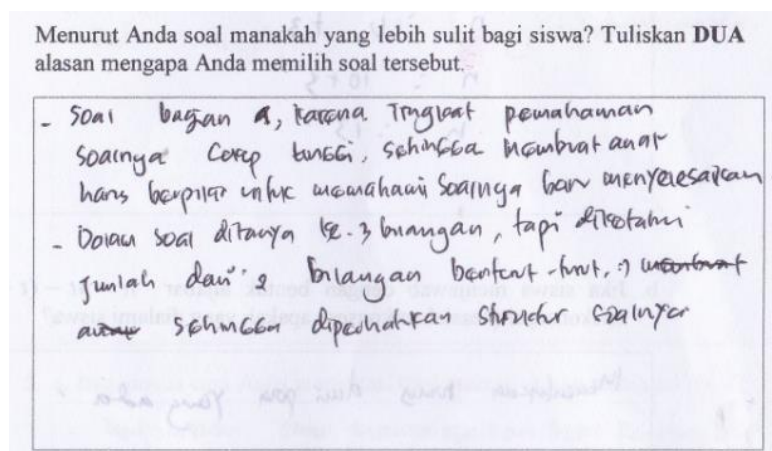 Menurut Anda soal manakah yang lebih sulit bagi siswa? Tuliskan DUA
alasan mengapa Anda memilih soal tersebut.
- Soal bagian a, karena Tingkat pemahaman
soalnya cukup tinggi, sehingga membuat anak
harus berpikir untuk memahami soalnya baru menyelesaikan
- Dalam soal ditanya ke-3 bilangan, tapi diketahui
jumlah dari 2 bilangan berturut-turut,
sehingga diperhatikan struktur soalnya